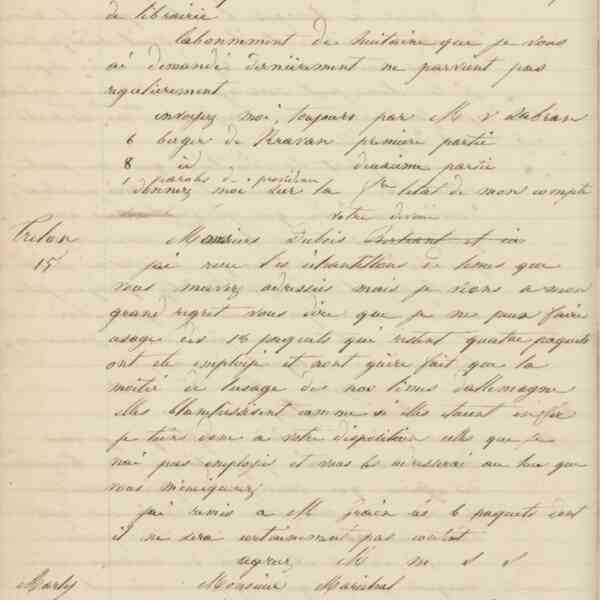 de librairie
labonnment de huitaine que je vous
ai demandé dernièrement ne parvient pas
regulierement
envoyez moi, toujours par M v Dabran
6 berger de Kravan premiere partie
8 id deuxieme partie
1 parole de providence
donnez moi sur la fre letat de mon compte
votre divoue
Trelon Messieurs Dubois
15 jai recu les échantillons de limes que
vous mavez adressés mais je viens a mon
grand regret vous dire que je ne peux faire
usage des 18 paquets qui restent quatre paquets
ont ete emploié et nont guère fait que la
moitié de lusage des nos limes dallemagne
elles blanchissent comme si elles etaient en fer
je tiens donc a votre disposition celles que je
nai pas emploié et vous les adresserai au lieu que
vous mindiquerez
jai remis a M les 6 paquets dont
il ne sera certainement pas contant
agreez M m s s
Marly Monsieur Marechal